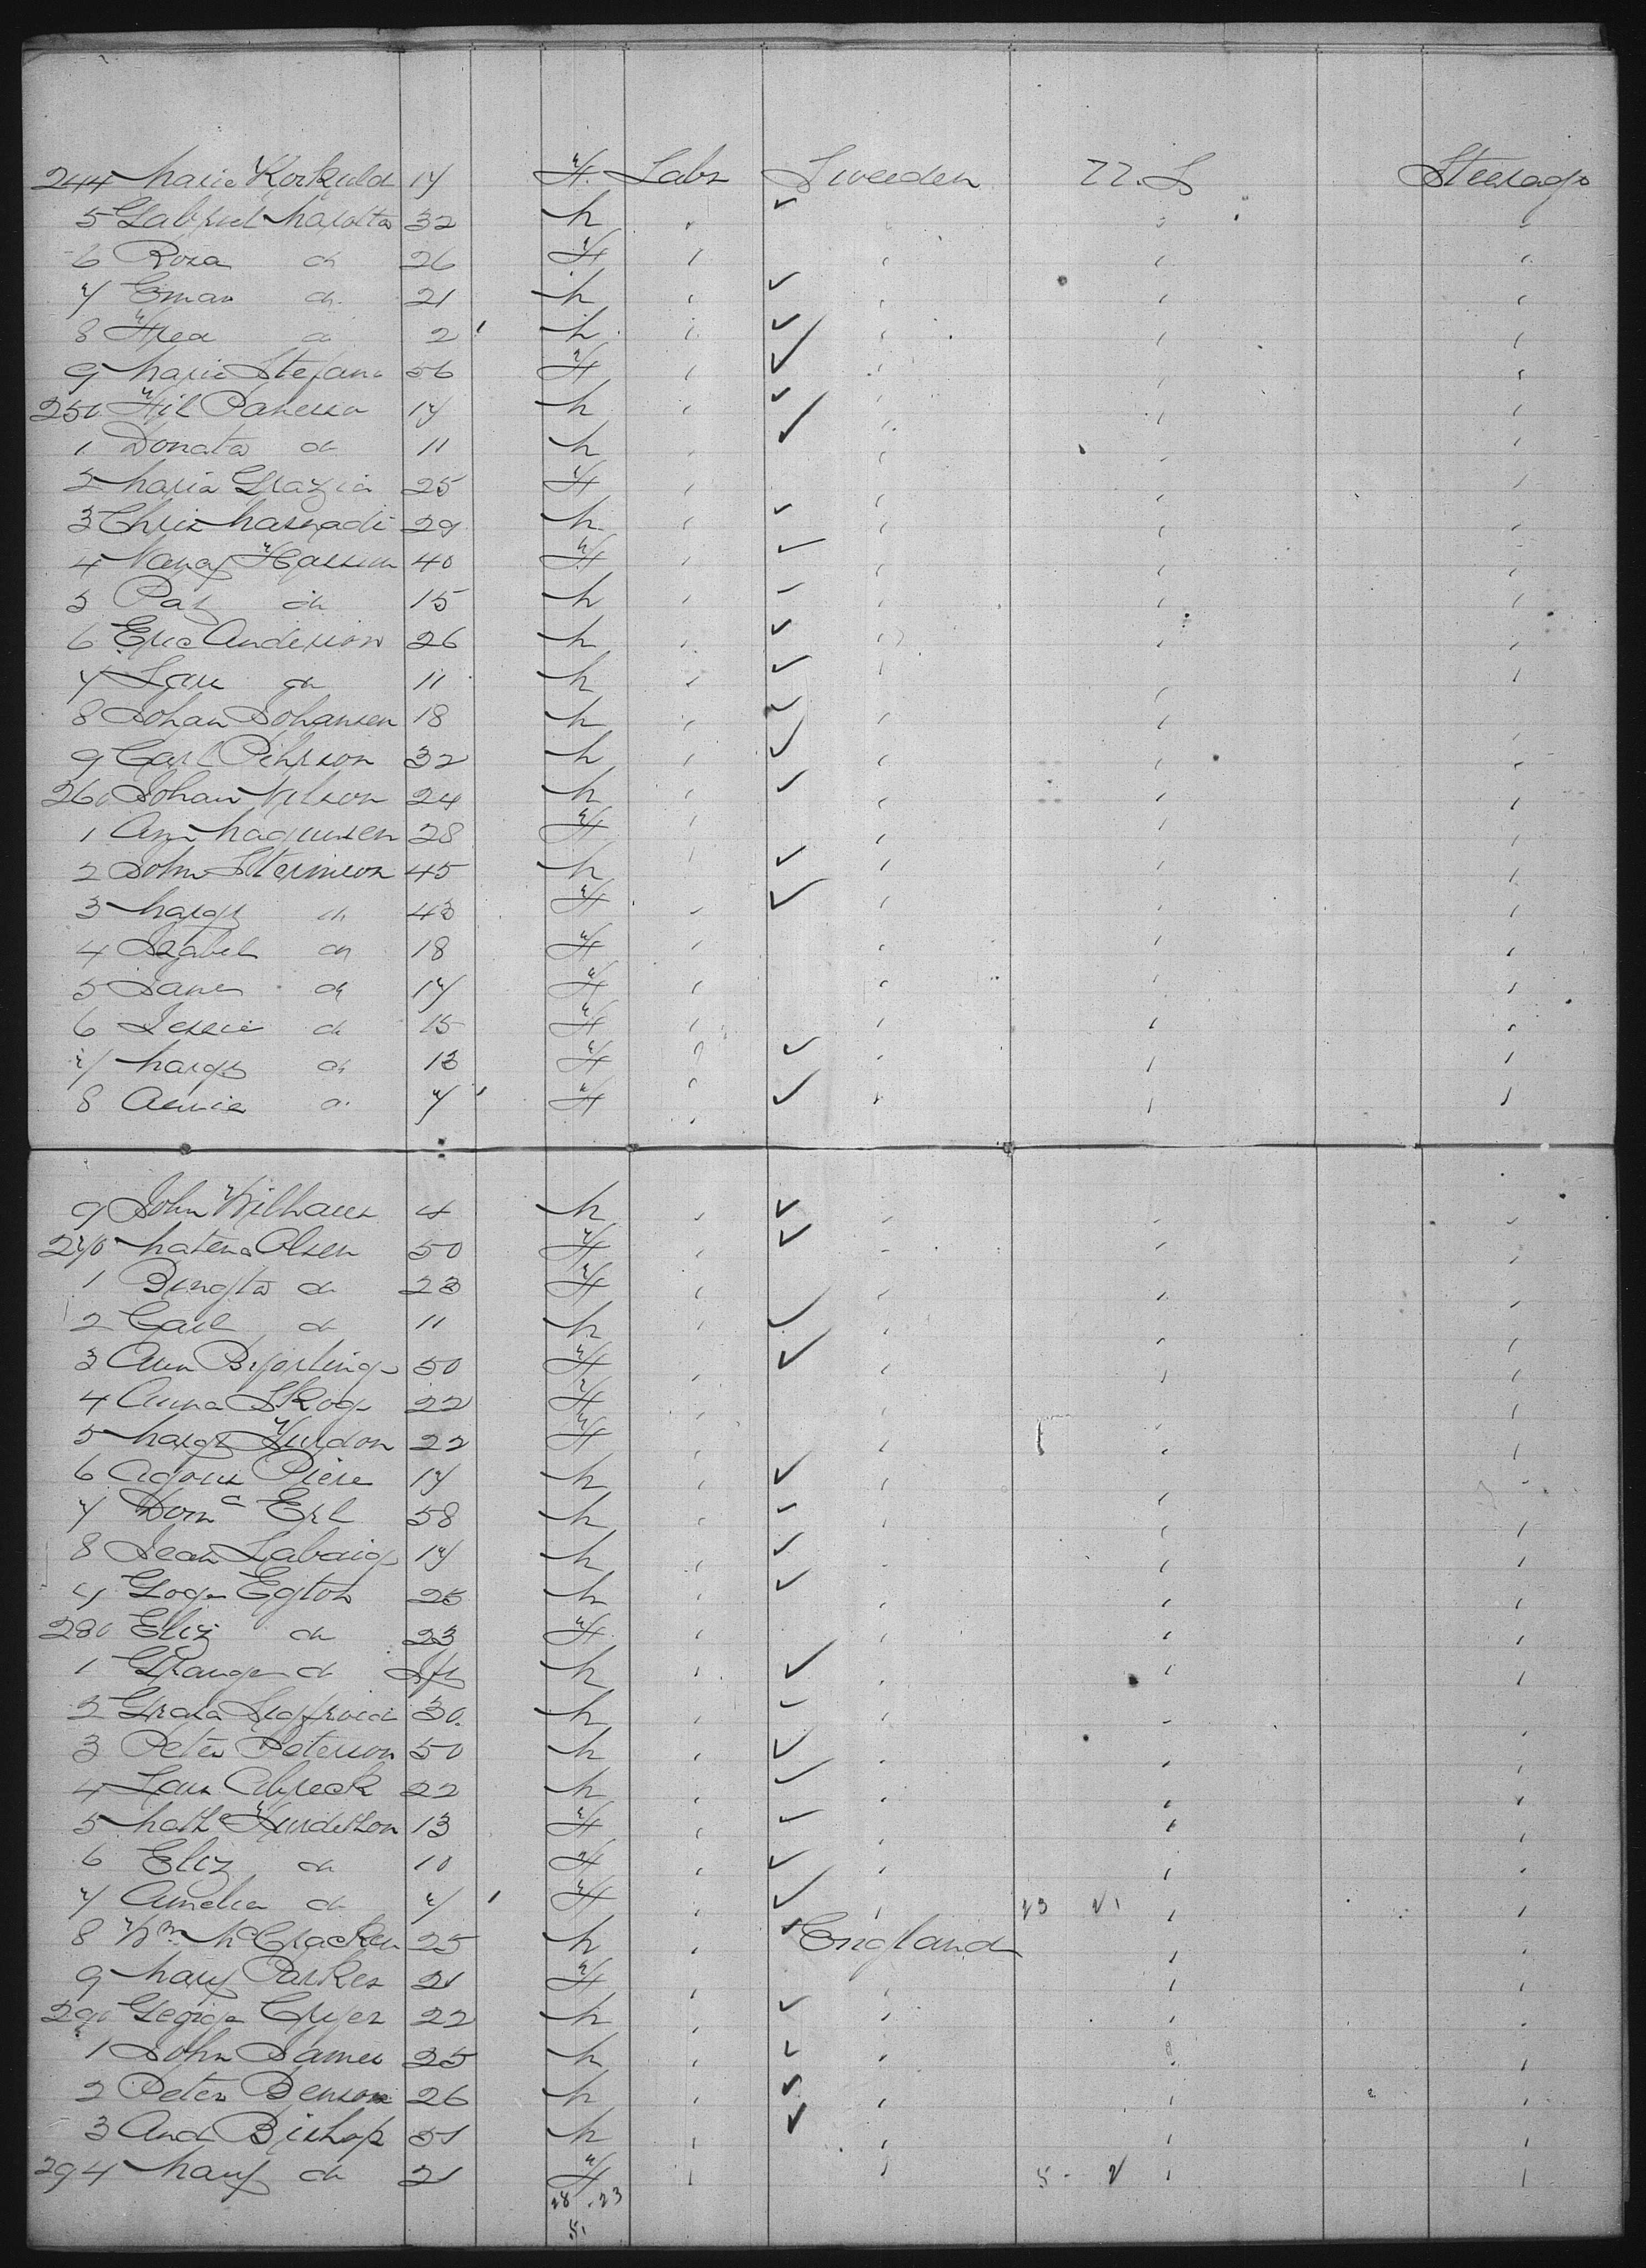 244 Marie Korkuld 17 F. Labr Sweeden U.S Steerage
5 Gabriel Marotta 32 M
6 Rosa do 26 F
7 Eman do 21 M
8 2 M
9 Marie Stefano 56 F
250 17 M
1 Donato do 11 M
2 Maria Grazia 25 F
3 Chris 29 M
4 Nancy 40 F
5 Pat do 15 M
6 Eric Anderson 26 M
7 Lars do 11 M
8 Johan Johansen 18 M
9 Carl Pehrson 32 M
260 Johan Nilson 24 M
1 Ann Magnusen 28 F
2 John 45 M
3 Margt do 43 F
4 Isabel do 18 F
5 Jane do 17 F
6 Jessie do 15 F
7 Margt do 13 F
8 Annie do 7 F
9 John Williams 4 M
270 Matena Olsen 50 F
1 Bengta do 23 F
2 Carl do 11 M
3 Ann Bjorling 50 F
4 Anna Skog 22 F
5 Margt 22 F
6 17 M
7 Domc Erl 58 M
8 Jean 17 M
9 Egton 25 M
280 Eliz do 23 F
1 Granger do Inf M
2 30 M
3 Peter Peterson 50 M
4 Lars 22 M
5 Mathe 13 F
6 Eliz do 10 F
7 Amelia do 7 F 23 21
8 Wm McCracken 25 M England
9 Mary Parkes 21 F
290 George Cryer 22 M
1 John James 25 M
2 Peter Benson 26 M
3 And Bishop 51 M
294 Mary do 21 F 5 - 2
28 . 23
51